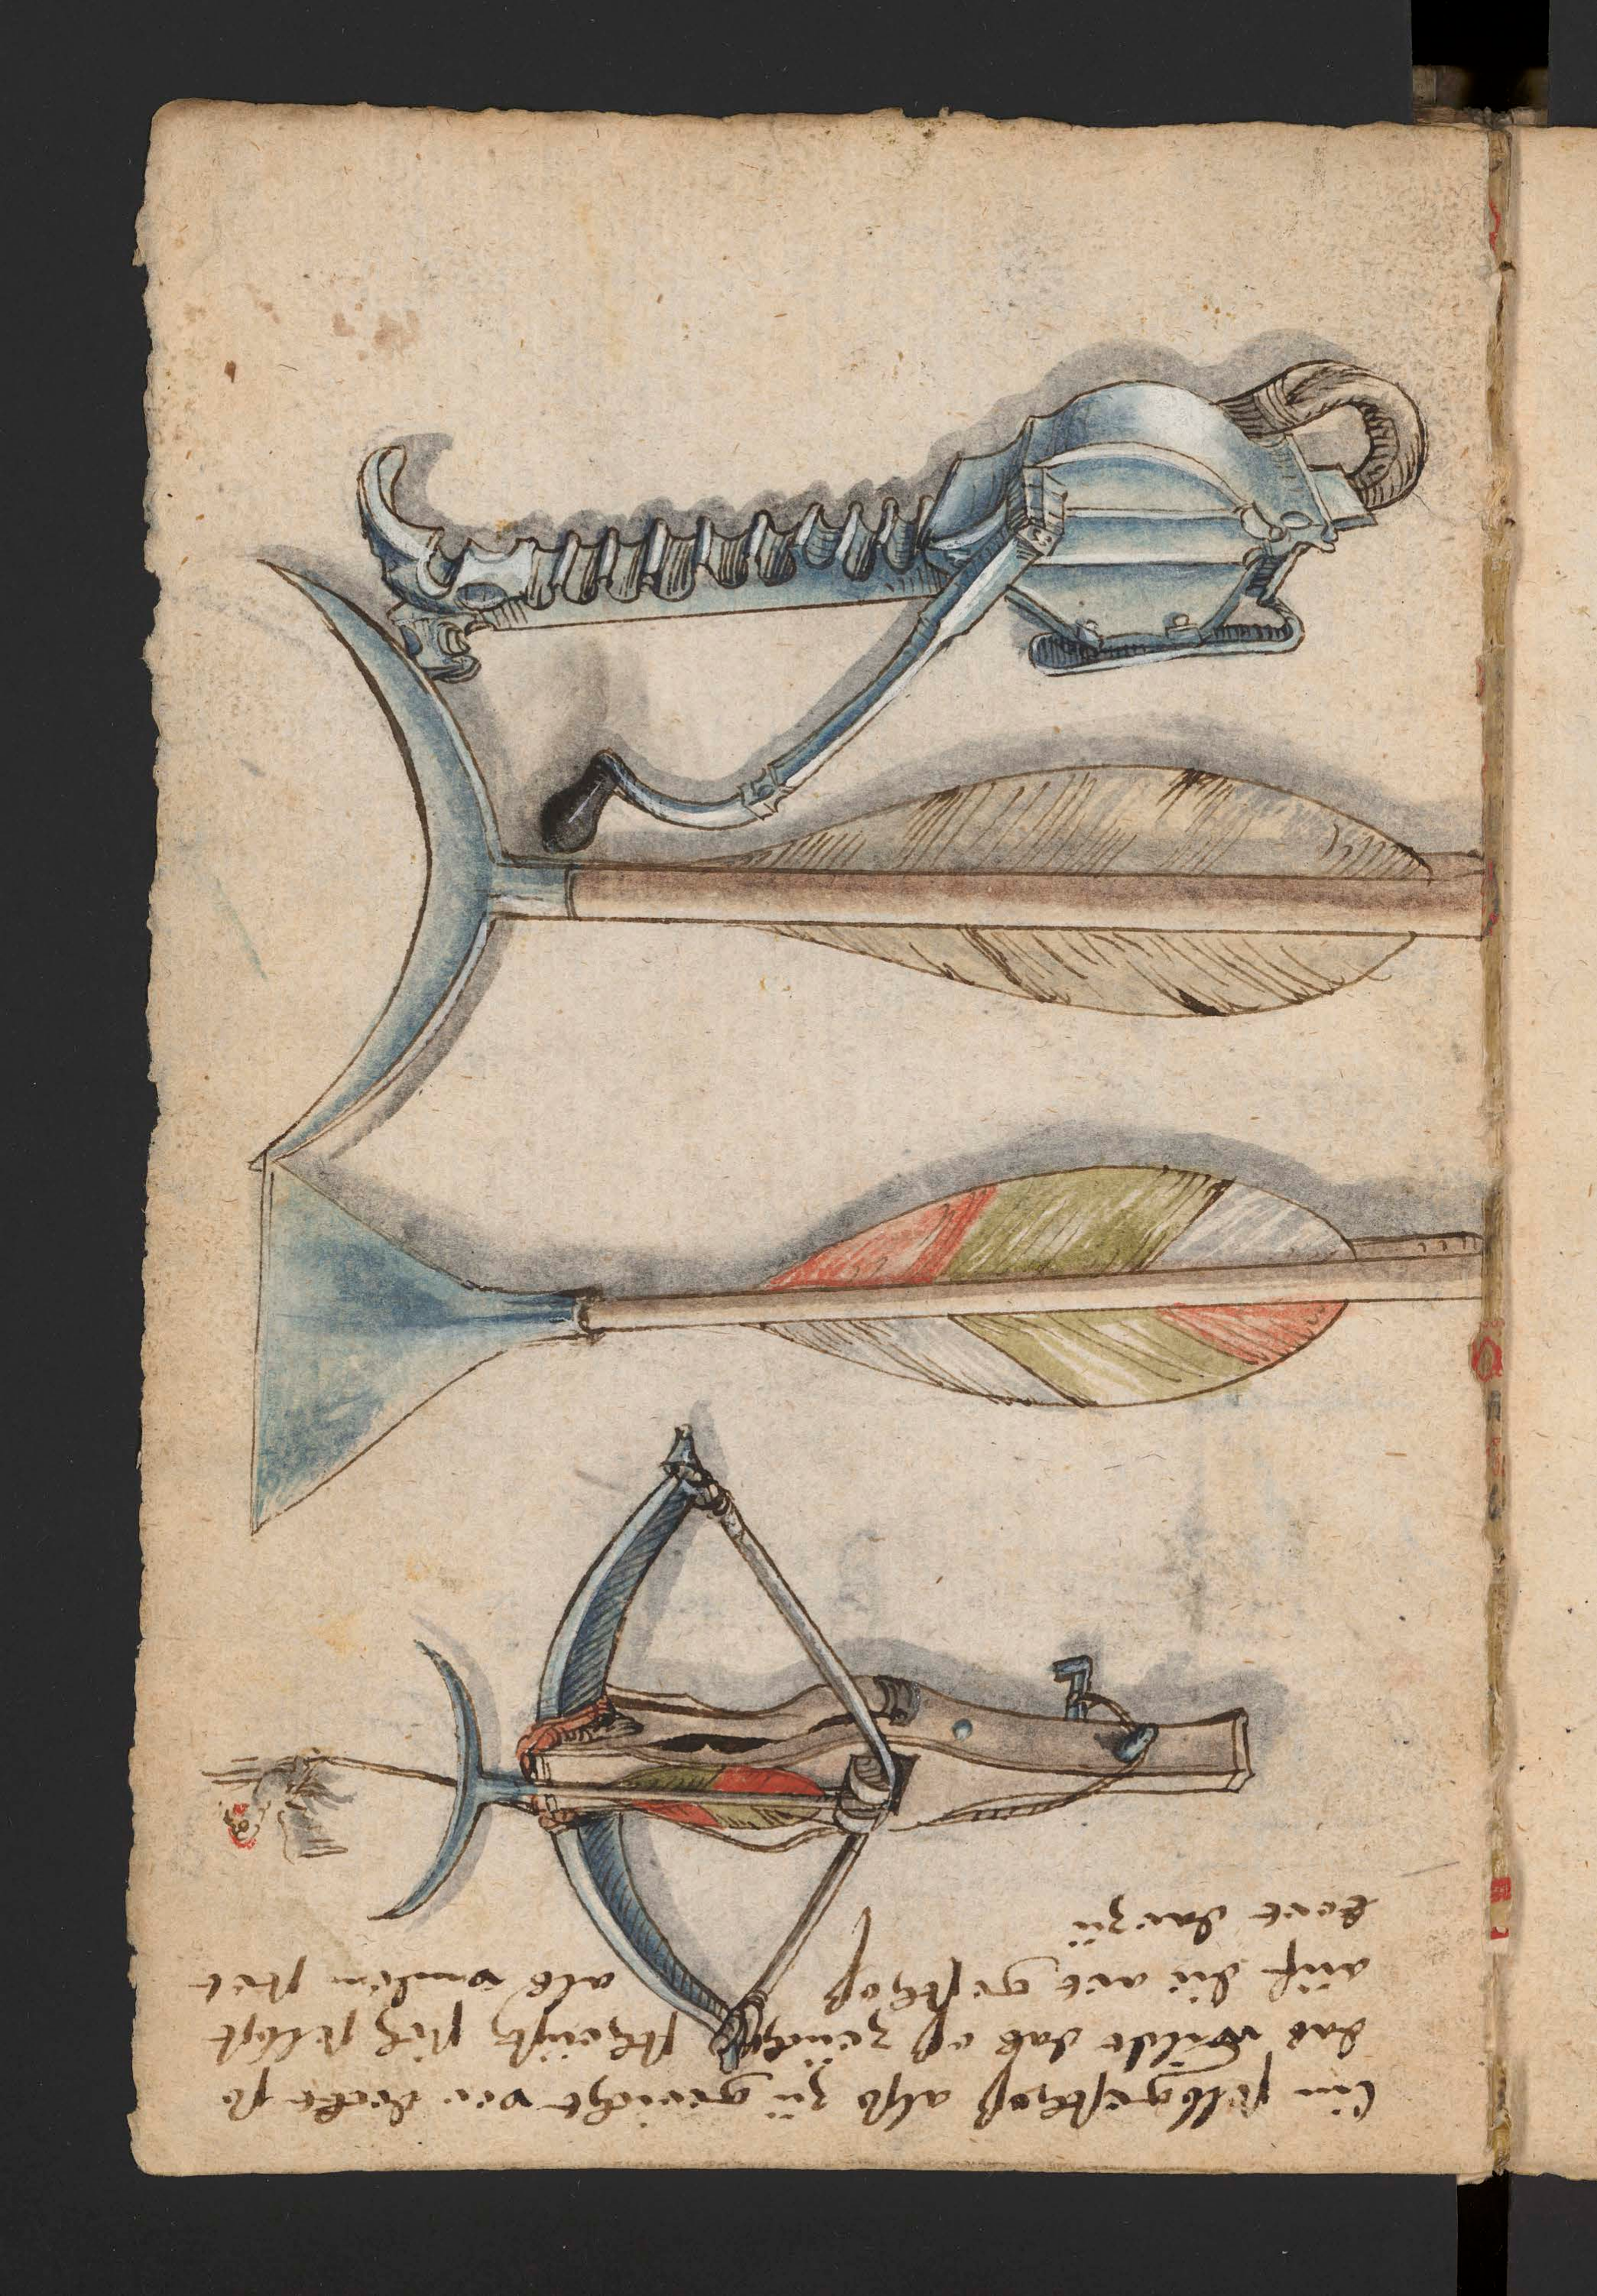 Ein selbgeschoß also zü gericht ver deckt so
das wildt das eß zeücht scheüst sich selbst
auf die art geschoß als unden stet
hort darzü